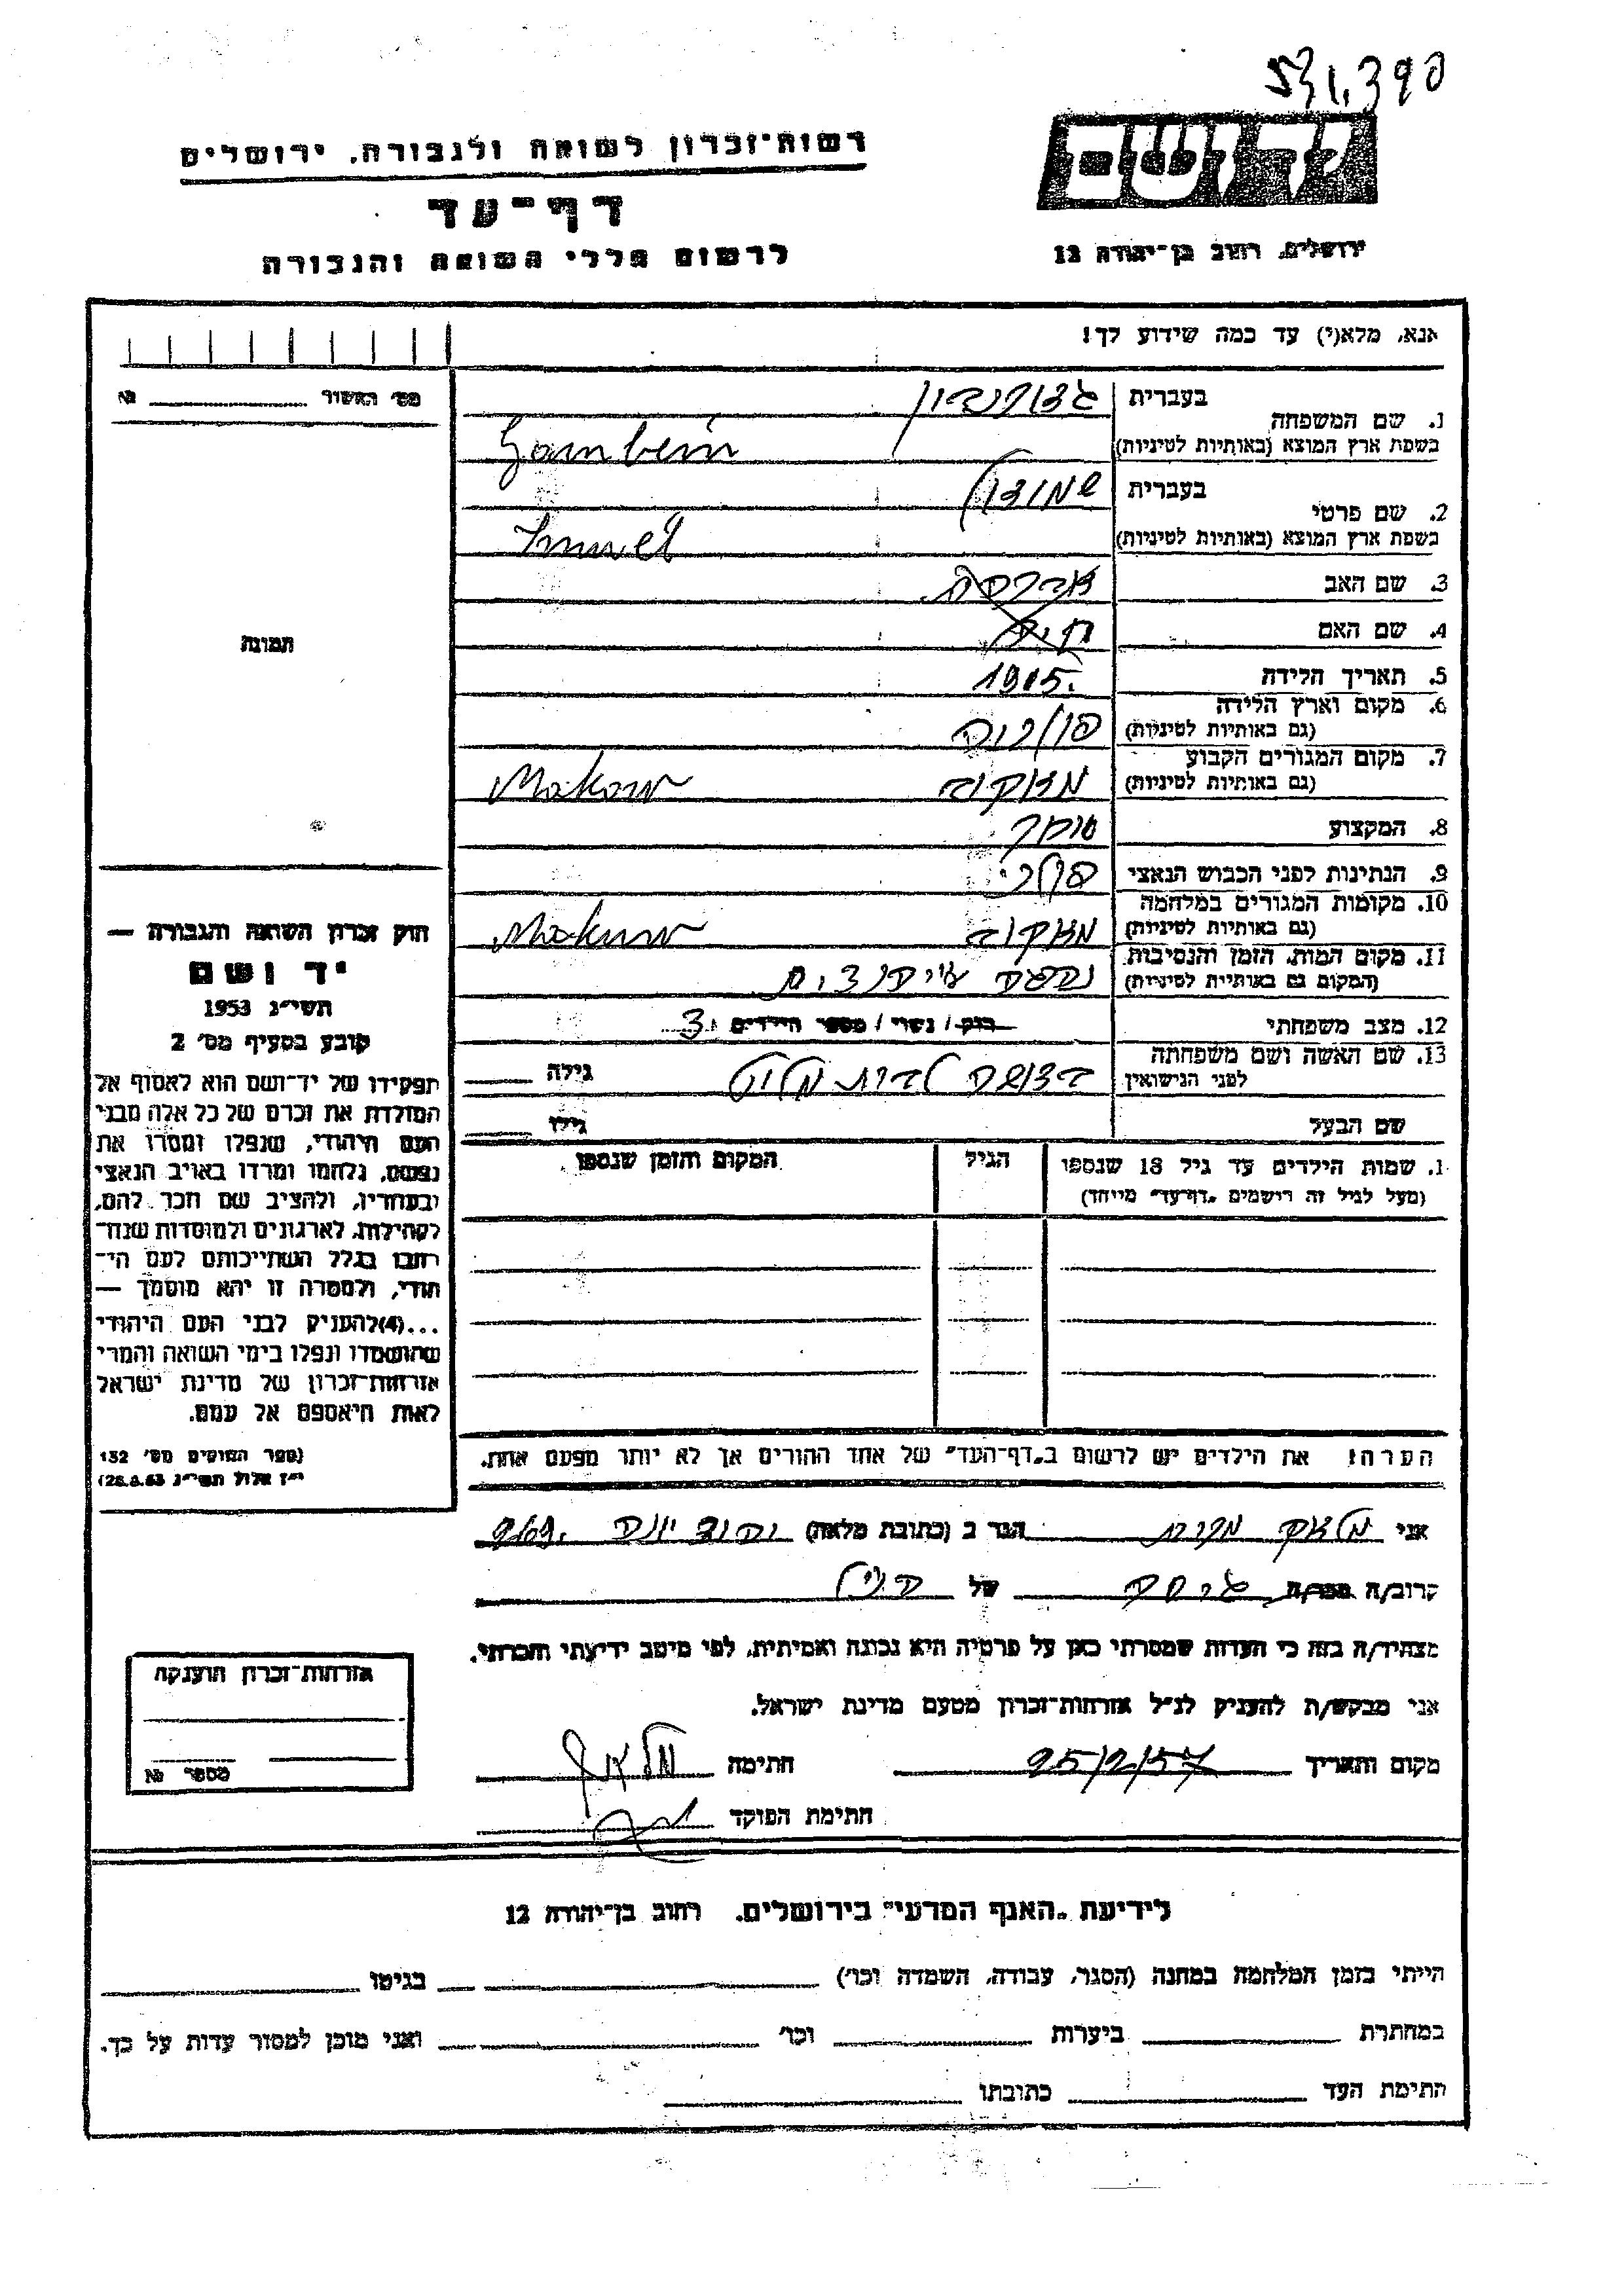 531.390
יד ושם
ירושלים, רחוב בן־יהודה 12
רשות־זכרון לשואה ולגבורה, ירושלים
דף־עד
לרשום חללי השואה והגבורה
אנא, מלא(י) עד כמה שידוע לך!
מס׳ האשור № 
1. שם המשפחה
בעברית
בשפת ארץ המוצא (באותיות לטיניות) Gambein
2. שם פרטי
בעברית שמואל
בשפת ארץ המוצא (באותיות לטיניות) Szmuel
3. שם האב אברהם
4. שם האם חיה
5. תאריך הלידה 1915.
6. מקום וארץ הלידה פולניה
(גם באותיות לטיניות)
7. מקום המגורים הקבוע מאקוב Makow
(גם באותיות לטיניות)
8. המקצוע סוחר
9. הנתינות לפני הכבוש הנאצי פולני
10. מקומות המגורים במלחמה
(גם באותיות לטיניות) מאקוב Makow
11. מקום המות, הזמן והנסיבות
(המקום גם באותיות לטיניות) נספה
12. מצב משפחתי רוק / נשוי / מספר הילדים 3
13. שם האשה ושם משפחתה
לפני הנישואין לבית גילה
שם הבעל גילו
1. שמות הילדים עד גיל 18 שנספו הגיל המקום והזמן שנספו
(מעל לגיל זה רושמים „דף־עד״ מיוחד)
הערה: את הילדים יש לרשום ב„דף־העד״ של אחד ההורים אך לא יותר מפעם אחת.
תמונה
חוק זכרון השואה והגבורה —
יד ושם
תשי״ג 1953
קובע בסעיף מס׳ 2
תפקידו של יד־ושם הוא לאסוף אל
המולדת את זכרם של כל אלה מבני
העם היהודי, שנפלו ומסרו את
נפשם, נלחמו ומרדו באויב הנאצי
ובעוזריו, ולהציב שם וזכר להם,
לקהילות, לארגונים ולמוסדות שנח־
רבו בגלל השתייכותם לעם הי־
הודי, ולמטרה זו יהא מוסמך —
...(4)להעניק לבני העם היהודי
שהושמדו ונפלו בימי השואה והמרי
אזרחות־זכרון של מדינת ישראל
לאות היאספם אל עמם.
(ספר החוקים מס׳ 132
י״ז אלול תשי״ג 28.8.53)
אני הגר ב (כתובת מלאה)
קרוב/ה מכר/ה של
מצהיר/ה בזה כי העדות שמסרתי כאן על פרטיה היא נכונה ואמיתית, לפי מיטב ידיעתי והכרתי.
אני מבקש/ת להעניק לנ״ל אזרחות־זכרון מטעם מדינת ישראל.
מקום ותאריך 25/2/57 חתימה
חתימת הפוקד
אזרחות־זכרון הוענקה
מספר №
לידיעת „האגף המדעי״ בירושלים. רחוב בן־יהודה 12
הייתי בזמן המלחמה במחנה (הסגר, עבודה, השמדה וכו׳) בגיטו
במחתרת ביערות וכו׳ ואני מוכן למסור עדות על כך.
חתימת העד כתובתו